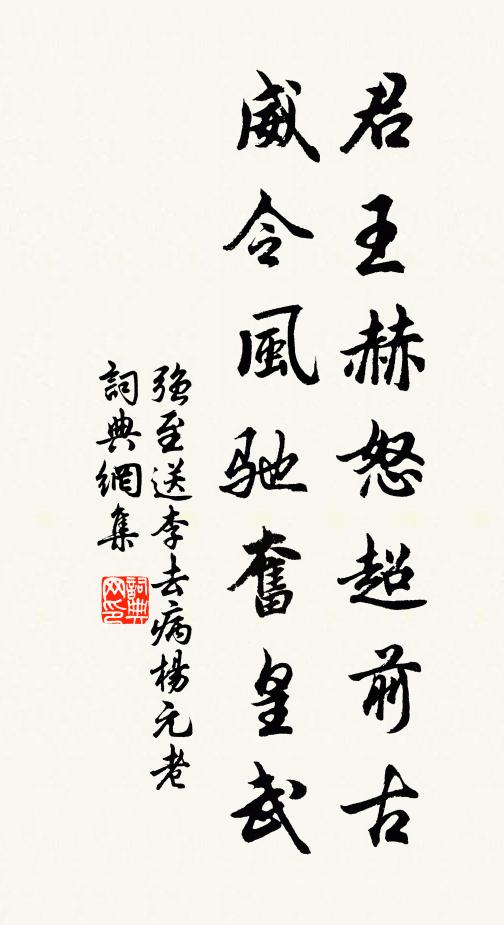 君王赫怒超前古
威令風驰奮皇武
強至送李去病楊元老
詞典網集
詞典網印